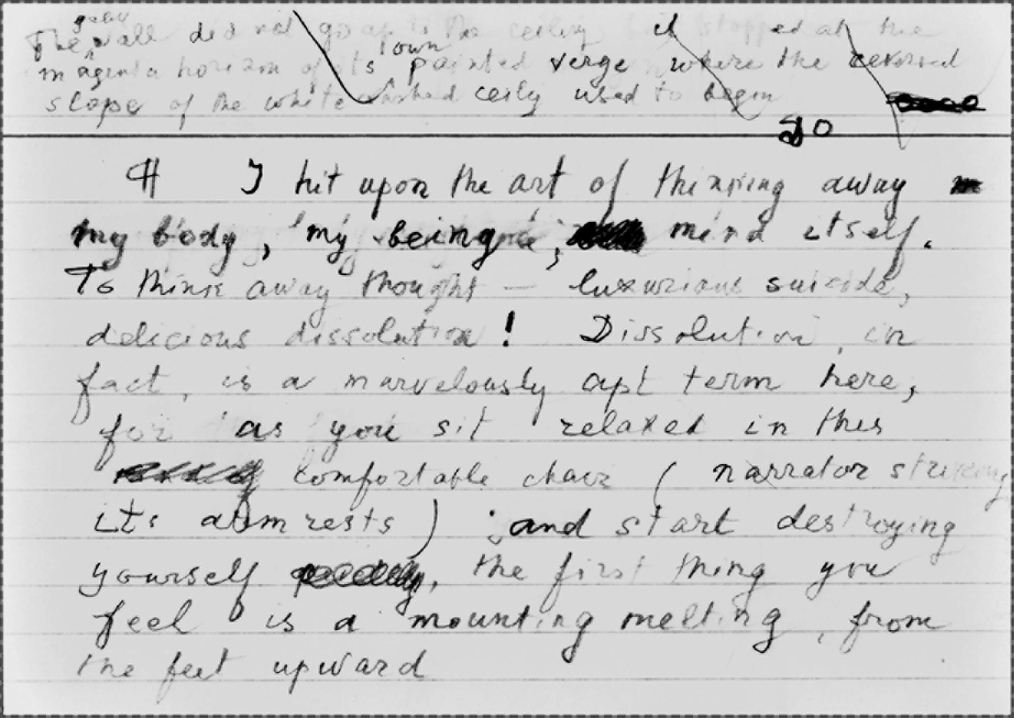 gable
The wall did not go up to the ceiling it stopped at the
magenta horizon of its own painted verge where the
slope of the whitewashed used to begin
I hit upon the art of thinking away
my body, my being, mind itself.
To think away thought — luxurious suicide,
delicious dissolution! Dissolution, in
fact, is a marvelously apt term here,
for as you sit relaxed in this
comfortable chair (narrator striking
its armrests) and start destroying
yourself, the first thing you
feel is a mounting melting, from
the feet upward